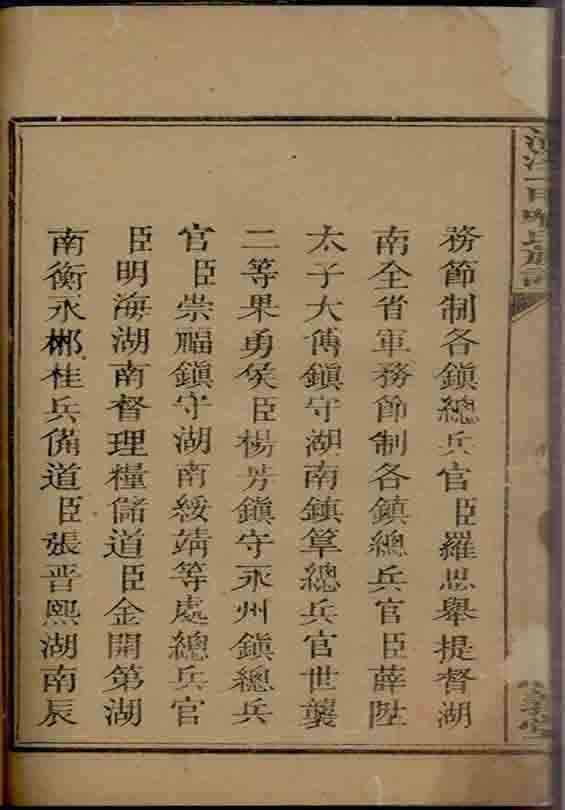 務節制各鎭總兵官臣羅思舉提督湖
南全省軍務節制各鎭總兵官臣薛陞
太子大傅鎭守湖南鎭筸總兵官世襲
二等果勇侯臣楊芳鎭守永州鎭總兵
官臣崇福鎭守湖南綏靖等處總兵官
臣明海湖南督理糧儲道臣金開第湖
南衡永郴桂兵備道臣張晋熙湖南辰